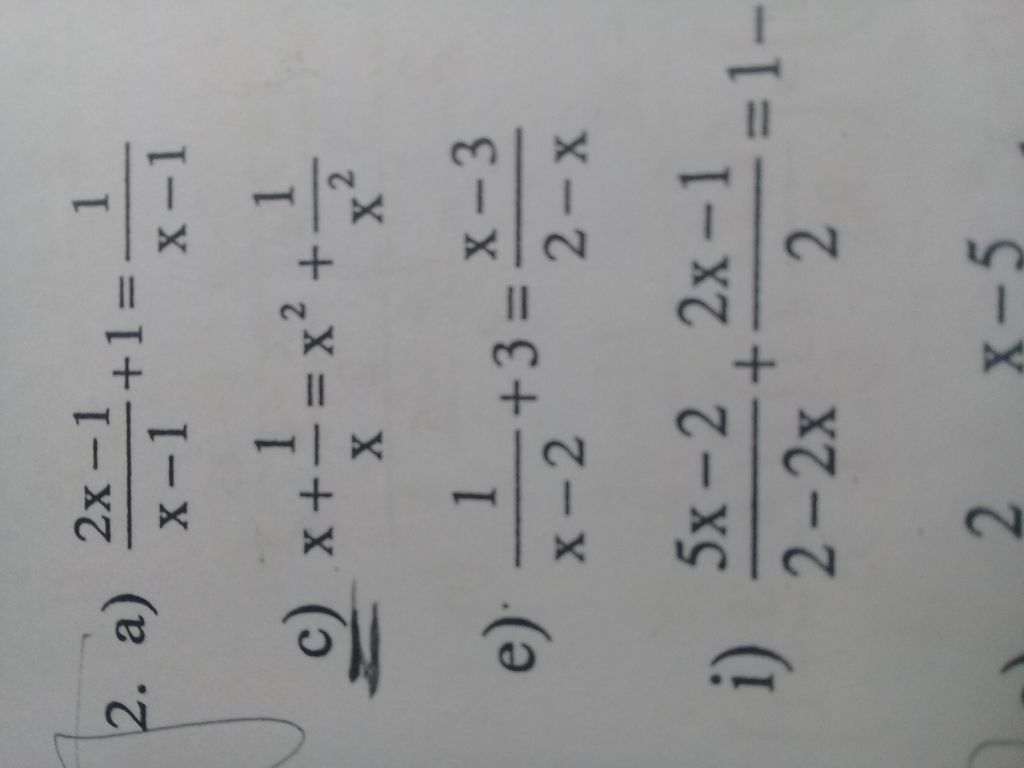 2. a) \frac{2x-1}{x-1} + 1 = \frac{1}{x-1}
c) x + \frac{1}{x} = x^2 + \frac{1}{x^2}
e) \frac{1}{x-2} + 3 = \frac{x-3}{2-x}
i) \frac{5x-2}{2-2x} + \frac{2x-1}{2} = 1 -
2 x-5